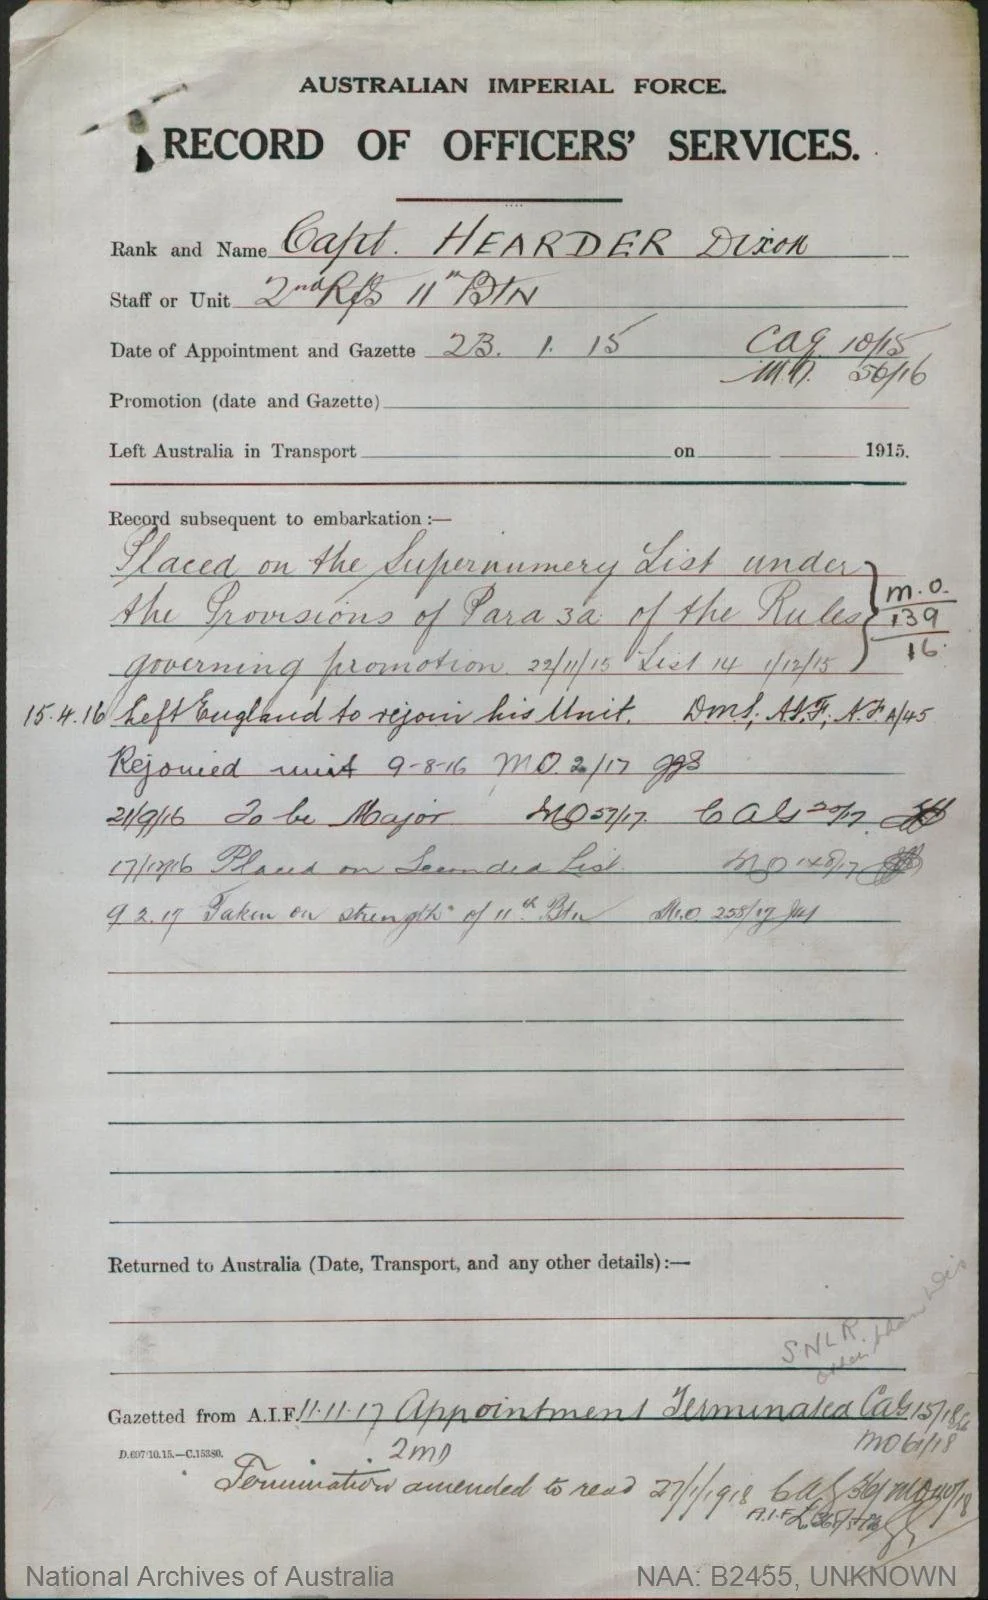 AUSTRALIAN IMPERIAL FORCE.
RECORD OF OFFICERS' SERVICES.
Rank and Name Capt. HEARDER Dixon
Staff or Unit 2nd Rfs 11th BTN
Date of Appointment and Gazette 23. 1. 15 CAG. 10/15
M.O. 56/16
Promotion (date and Gazette)
Left Australia in Transport on 1915.
Record subsequent to embarkation :—
Placed on the Supernumery List under
the Provisions of Para 3a of the Rules
governing promotion. 22/11/15 List 14 1/12/15
m.o.
139
16.
15.4.16 Left England to rejoin his Unit. DMS, AIF, A/45
Rejoined unit 9-8-16 MO. 2/17
21/9/16 To be Major MO 57/17. CAG 20/17
Placed on Seconded List. MO 148/17
9.2.17 Taken on strength of 11th Btn M.O. 258/17
Returned to Australia (Date, Transport, and any other details) :—
S.N.L.R.
other than
Gazetted from A.I.F. 11.11.17 Appointment Terminated CAG. 15/18
D.697/10.15.—C.15380. 2MD MO 61/18
Termination amended to read 27/1/1918 CAG 36/
A.I.F.
National Archives of Australia NAA: B2455, UNKNOWN